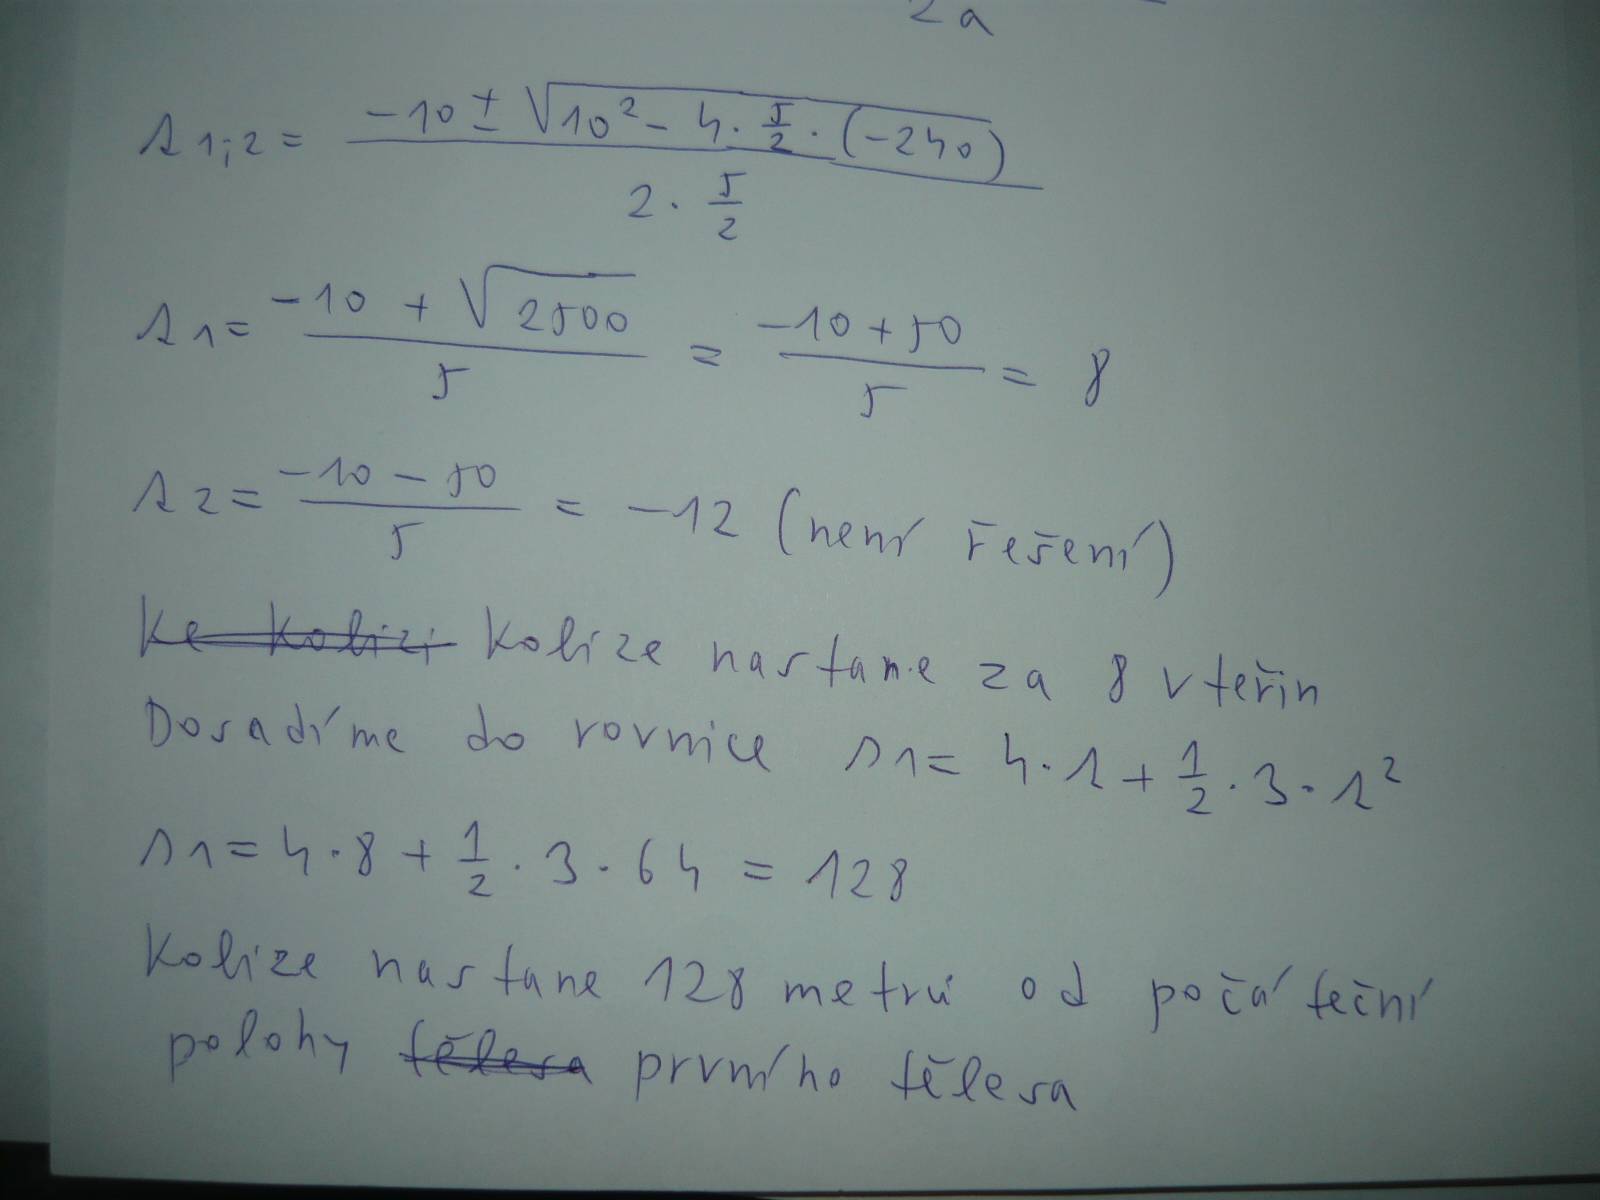 2a
t1;2 = (-10 ± √(10² - 4 · 5/2 · (-240))) / (2 · 5/2)
t1 = (-10 + √2500) / 5 = (-10 + 50) / 5 = 8
t2 = (-10 - 50) / 5 = -12 (není řešení)
Ke kolizi Kolize nastane za 8 vteřin
Dosadíme do rovnice s1 = 4 · t + 1/2 · 3 · t²
s1 = 4 · 8 + 1/2 · 3 · 64 = 128
Kolize nastane 128 metrů od počáteční
polohy tělesa prvního tělesa